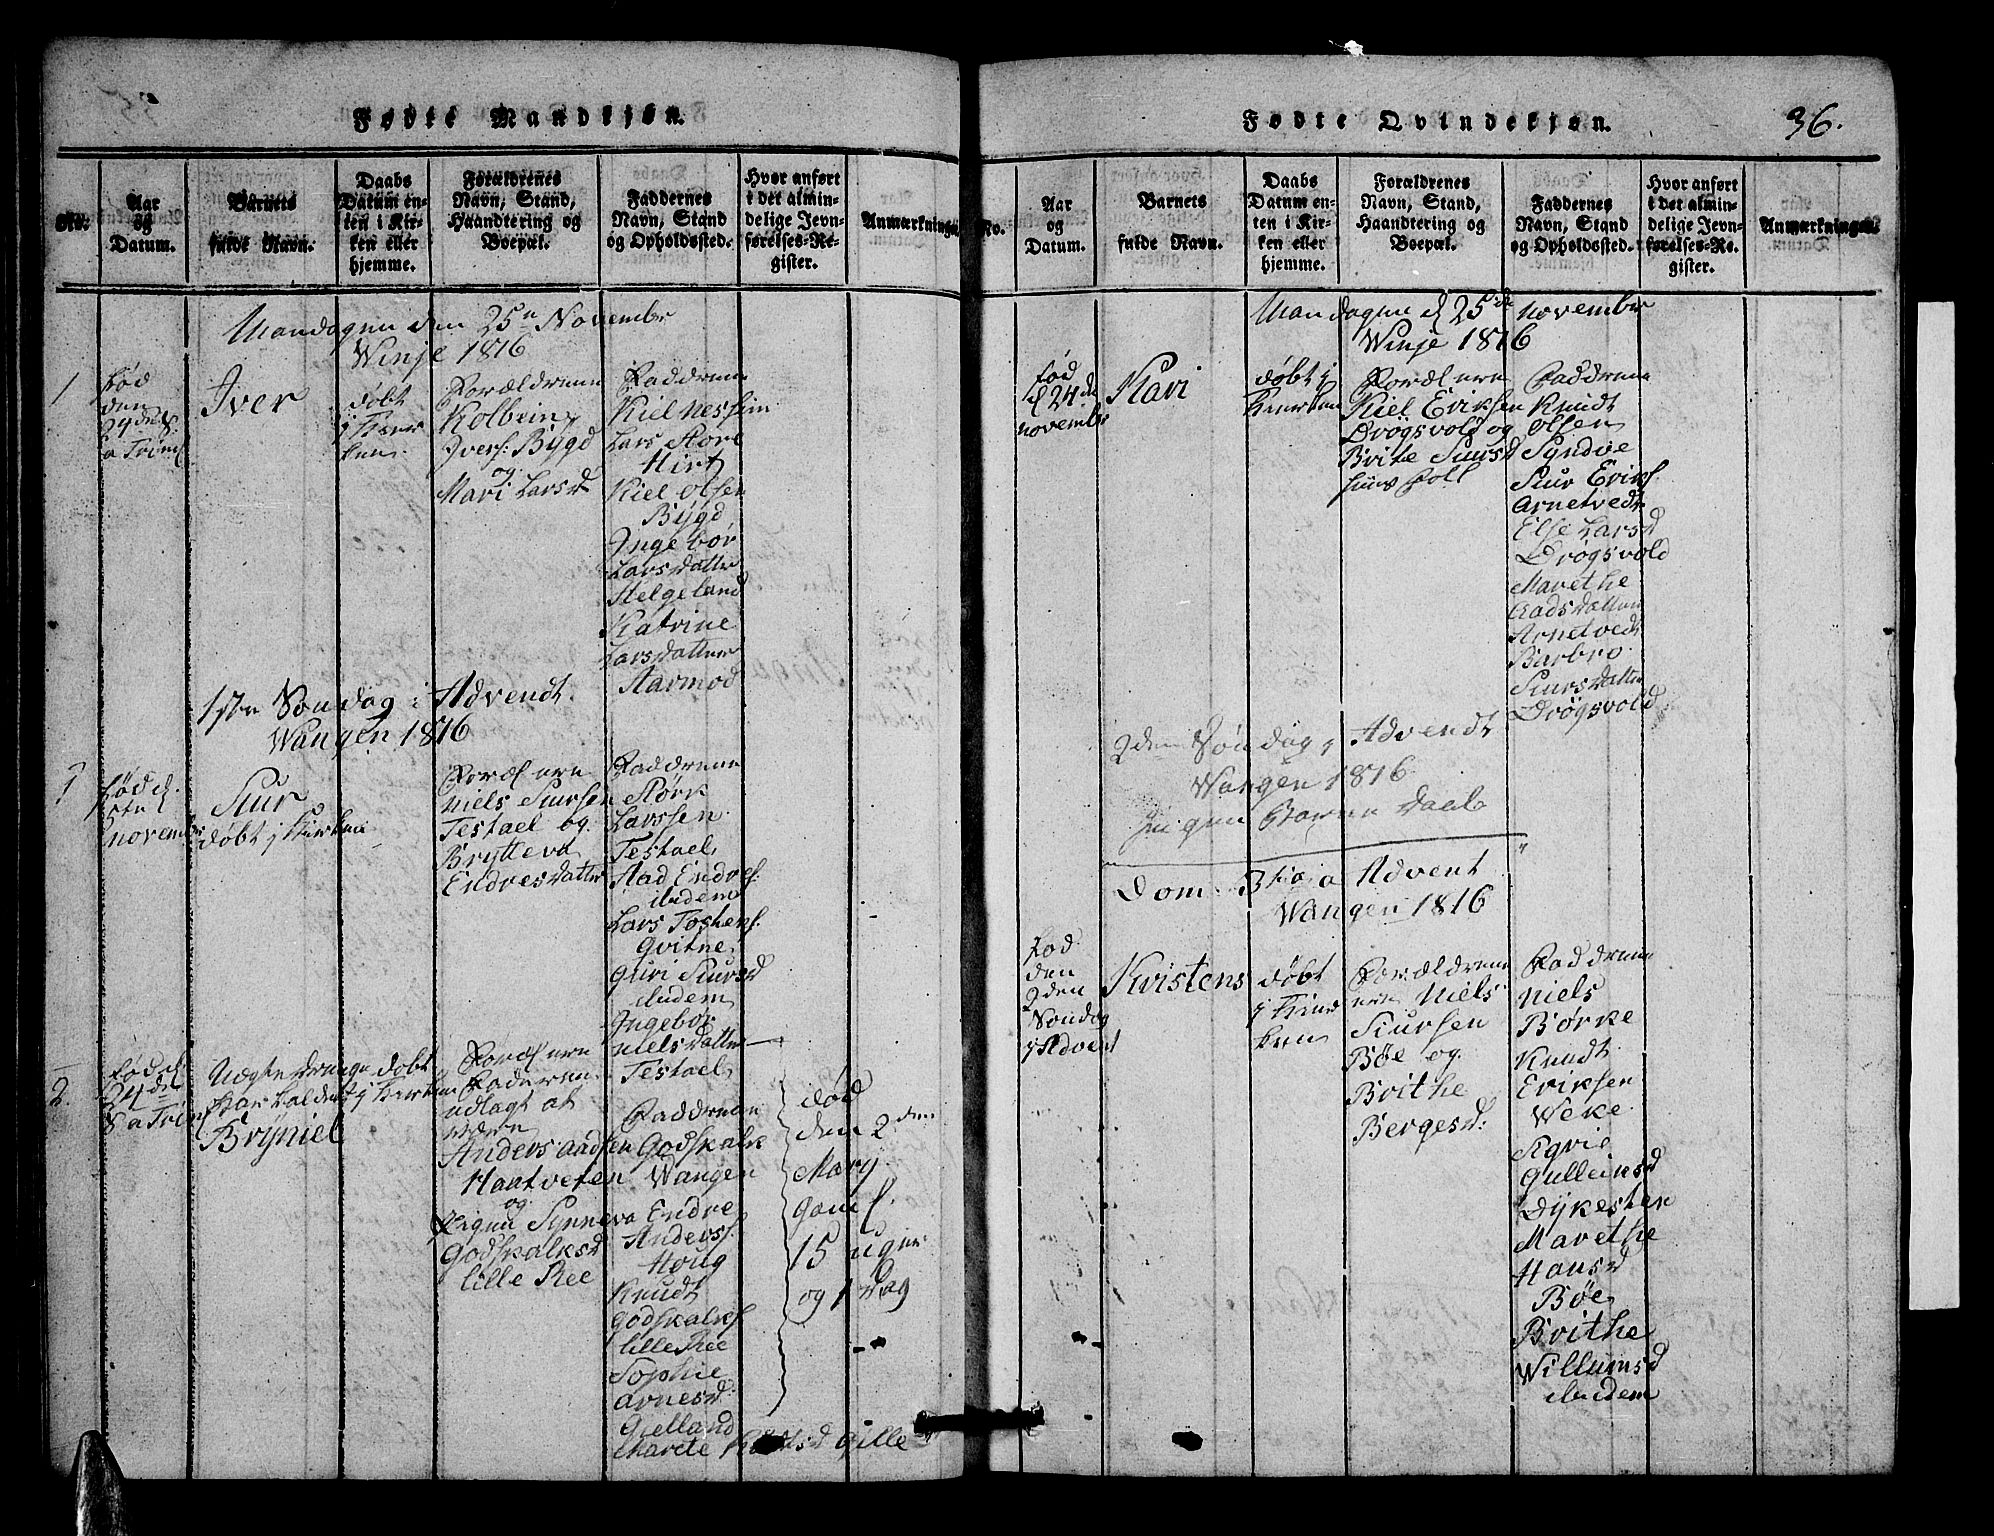 Fødte Mandkjøn.
No.
Aar
og
Datum.
Barnets
fulde Navn.
Daabs
Datum en-
ten i Kir-
ken eller
hjemme.
Forældrenes
Navn, Stand,
Haandtering og
Boepæl.
Faddernes
Navn, Stand
og Opholdssted.
Hvor anført
i det almin-
delige Jevn-
førelses-Re-
gister.
Anmærkninger.
Mandagen den 25n November
Winje 1816
1
Fød
den
24de S.
a Trin.
Iver
døbt
i Kier
ken
Forældrene
Kolbein
Ivers. Bÿgd
og
Mari Larsd
Faddrene
Kiel Nesheim
Lars Store
Kiel Olsen
Bÿgd
Ingebor
Larsdatter
Helgeland
Katrine
Larsdatter
Aarmod
1ste Søndag i Advendt.
Wangen 1816
1
fød d.
5te
november
Siur
døbt i Kirken
Foræl ere
Niels Siursen
Testael og
Brytteva
Endresdatter
Faddrene
Størk
Larssen
Testael
Aad Endres.
ibidem
Lars Tostens.
Gvitne
Guri Siursd
ibidem
Ingebor
Nielsdatter
Testael
2.
fød d.
24de
S a Trin
Uægte drenge døbt
Bar kaldet i Kierken
Bryniel
Foræl ere
Faderen
udlagt at
være
Anders Aadsen
Haatveten
og
Pigen Synneva
Godskalksd
lille Ree
Faddrene
Godskalk
Wangen
Endre
Anderss.
Houg
Knudt
Godskalks
lille Ree
Sophie
Arnesd.
Gielland
Marete Knutsd Gille
død
den 2den
Marÿ
Gaml.
15 uger
og 1 Dag
Fødte Qvindekjøn.
36.
No.
Aar
og
Datum.
Barnets
fulde Navn.
Daabs
Datum en-
ten i Kir-
ken eller
hjemme.
Forældrenes
Navn, Stand,
Haandtering og
Boepæl.
Faddernes
Navn, Stand
og Opholdssted.
Hvor anført
i det almin-
delige Jevn-
førelses-Re-
gister.
Anmærkninger.
Mandagen d 25de november
Winje 1816
fød
d 24de
november
Kari
døbt i
Kierken
Foræl ere
Kiel Eriksen
Drøgsvold og
Brite Siursd
Faddrene
Knudt
Olsen
Syndve
Siur Eriks.
Arnetvedt
Else Larsd
Drøgsvold
Marethe
Aadsdatter
Arnetvedt
Barbro
Siursdatter
Drøgsvold
2den Søndag i Advendt
Wangen 1816
Ingen Barne Daab
Dom. 3tia a Advent
Wangen 1816
fød
den
2den
Søndag
i Advent
Kristens
døbt
i Kier
ken
Forældrene
ere Niels
Siursen
Bøe og
Brithe
Bergesd:
Faddrene
Niels
Børke
Knudt
Eriksen
Weke
Sigrie
Gulleiksd
Dykesten
Marethe
Hansd
Bøe
Brithe
Willumsd
ibidem